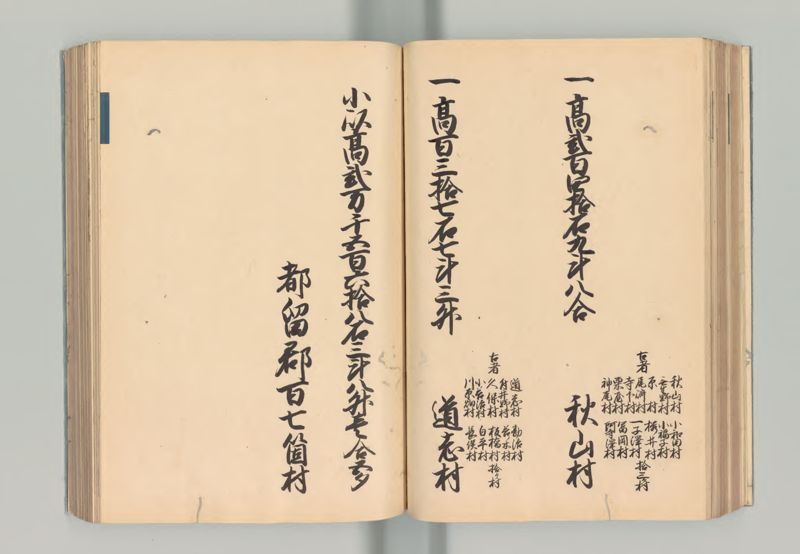 一 高弐百四拾石九斗八合
秋山村
古者
秋山村 小和田村
村 小福子村
原村 桜井村
尾﨑村 一子澤村 拾三村
寺下村 富岡村
栗谷村
神尾村
一 高百三拾七石七斗三升
道志村
古者
道志村 村
村 村
久保村 板橋村 拾ヶ村
小善治村 白平村
川原畑村 長俣村
小以高弐万千五百六拾八石三斗八升壱合
都留郡百七箇村